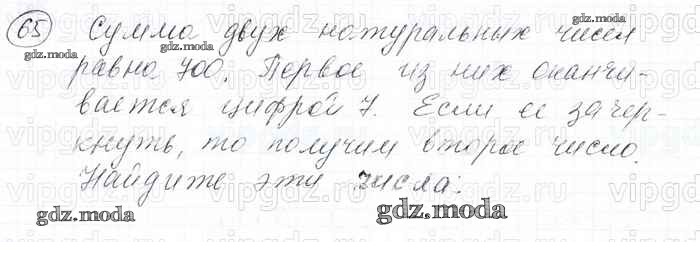 65 Сумма двух натуральных чисел
равна 700. Первое из них оканчи-
вается цифрой 7. Если её зачер-
кнуть, то получим второе число.
Найдите эти числа.
gdz.moda
gdz.moda
gdz.moda
gdz.moda